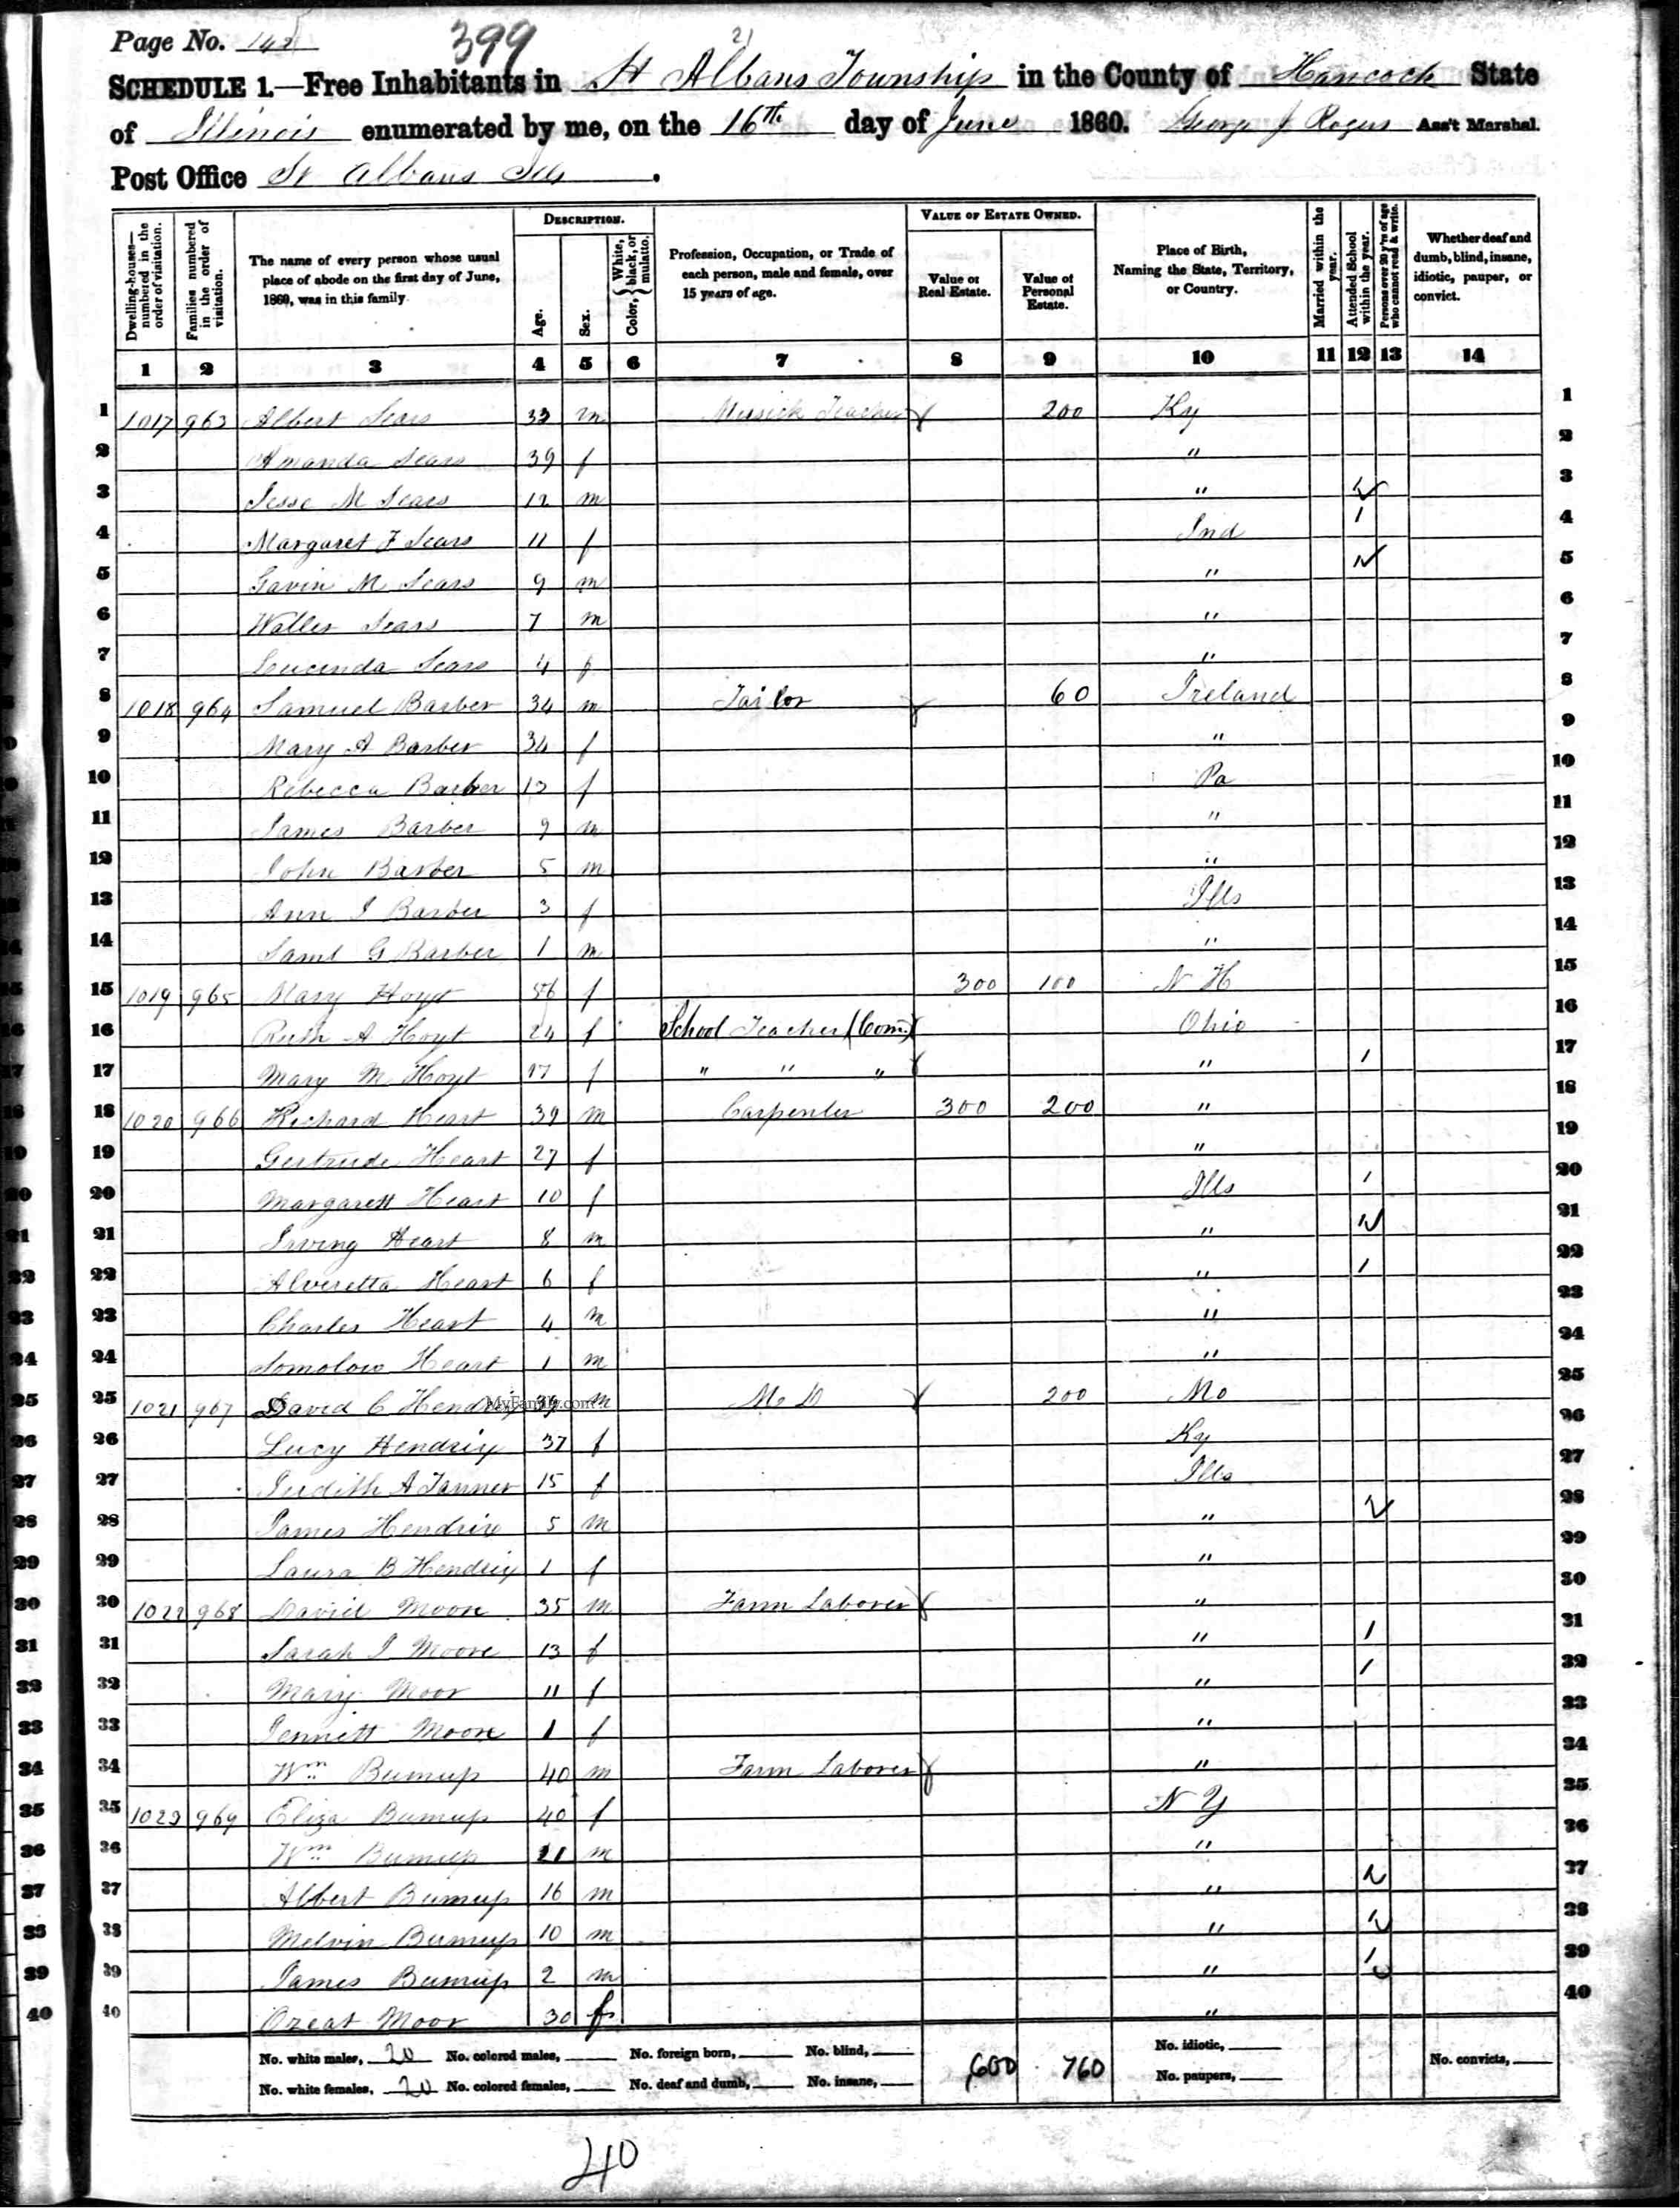 Page No. 142
399
21
SCHEDULE 1.—Free Inhabitants in St Albans Township in the County of Hancock State
of Illinois enumerated by me, on the 16th day of June 1860. George J Rogers Ass't Marshal.
Post Office St Albans Ills.
DESCRIPTION. VALUE OF ESTATE OWNED.
Dwelling-houses—numbered in the order of visitation.
Families numbered in the order of visitation.
The name of every person whose usual place of abode on the first day of June, 1860, was in this family.
Age.
Sex.
Color, { White, black, or mulatto.
Profession, Occupation, or Trade of each person, male and female, over 15 years of age.
Value of Real Estate.
Value of Personal Estate.
Place of Birth, Naming the State, Territory, or Country.
Married within the year.
Attended School within the year.
Persons over 20 y'rs of age who cannot read & write.
Whether deaf and dumb, blind, insane, idiotic, pauper, or convict.
1 2 3 4 5 6 7 8 9 10 11 12 13 14
1 1017 963 Albert Sears 33 m Musick Teacher 200 Ky 1
2 Amanda Sears 39 f " 2
3 Jesse M Sears 12 m " 3
4 Margaret F Sears 11 f Ind / 4
5 Gavin M Sears 9 m " 5
6 Walter Sears 7 m " 6
7 Lucinda Sears 4 f " 7
8 1018 964 Samuel Barber 34 m Tailor 60 Ireland 8
9 Mary A Barber 34 f " 9
10 Rebecca Barber 13 f Pa 10
11 James Barber 9 m " 11
12 John Barber 5 m " 12
13 Ann J Barber 3 f Ills 13
14 Saml G Barber 1 m " 14
15 1019 965 Mary Hoyt 56 f 300 100 N H 15
16 Ruth A Hoyt 24 f School Teacher (Com.) Ohio 16
17 Mary M Hoyt 17 f " " " " / 17
18 1020 966 Richard Heart 39 m Carpenter 300 200 " 18
19 Gertrude Heart 27 f " 19
20 Margarett Heart 10 f Ills / 20
21 Irving Heart 8 m " 21
22 Alveretta Heart 6 f " / 22
23 Charles Heart 4 m " 23
24 Heart 1 m " 24
25 1021 967 David C Hendrix 39 m M D 200 Mo 25
MyFamily.com
26 Lucy Hendrix 37 f Ky 26
27 Judith A Tanner 15 f Ills 27
28 James Hendrix 5 m " 28
29 Laura B Hendrix 1 f " 29
30 1022 968 David Moore 35 m Farm Laborer " 30
31 Sarah J Moore 13 f " / 31
32 Mary Moor 11 f " / 32
33 Jennett Moore 1 f " 33
34 Wm Burnup 40 m Farm Laborer " 34
35 1023 969 Eliza Burnup 40 f N Y 35
36 Wm Burnup 21 m " 36
37 Albert Burnup 16 m " 37
38 Melvin Burnup 10 m " 38
39 James Burnup 2 m " 39
40 Ozeat Moor 30 f " 40
No. white males, 20 No. colored males, No. foreign born, No. blind, 600 760 No. idiotic, No. convicts,
No. white females, 20 No. colored females, No. deaf and dumb, No. insane, No. paupers,
40